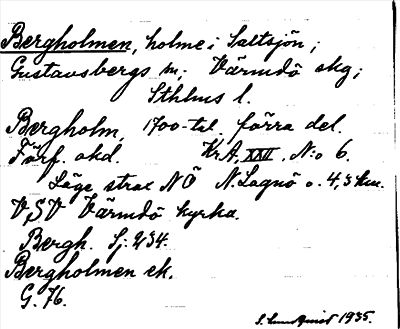 Bergholmen, holme i Saltsjön;
Gustavsbergs m; Värmdö skg;
Sthlms l.
Bergholm, 1700-tal. förra del.
Förf. okd. KrA, XXII, N:o 6.
Läge strax NÖ N. Lagnö o. 4,3 km.
V,SV Värmdö kyrka.
Bergh. Sj. 234.
Bergholmen ek.
G. 76.
S. Lundqvist 1935.